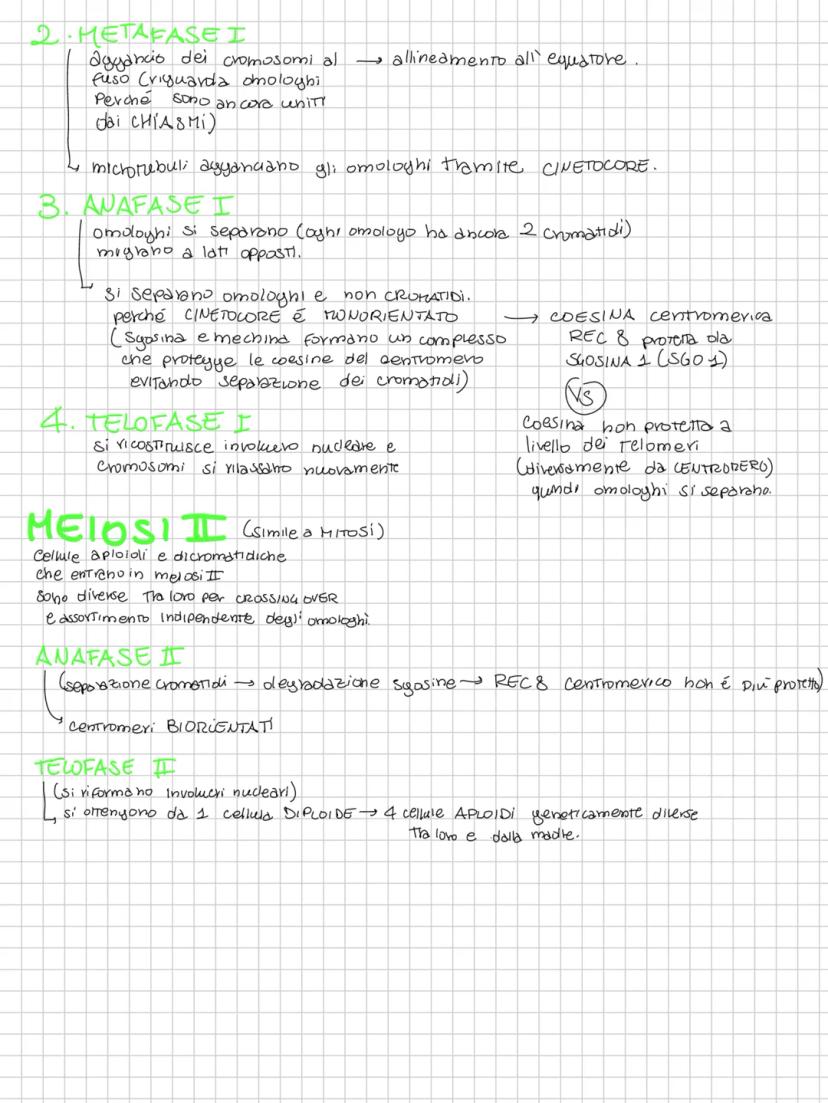 2. METAFASE I
aggancio dei cromosomi al → allineamento all'equatore.
fuso (riguarda omologhi
perché sono ancora uniti
dai CHIASMI)
microtubuli agganciano gli omologhi tramite CINETOCORE.
3. ANAFASE I
omologhi si separano (ogni omologo ha ancora 2 cromatidi)
migrano a lati opposti.
si separano omologhi e non CROMATIDI.
perché CINETOCORE É MONORIENTATO
(Sgosina e mechina formano un complesso
che protegge le coesine del centromero
evitando separazione dei cromatidi)
→ COESINA centromerica
REC 8 protetta da
SGOSINA 1 (SGO1)
VS
Coesina non protetta a
livello dei telomeri
(diversamente da CENTROMERO)
quindi omologhi si separano.
4. TELOFASE I
si ricostruisce involucro nucleare e
cromosomi si rilassano nuovamente
MEIOSI II (simile a MITOSI)
cellule aploidi e dicromatidiche
che entrano in meiosi II
sono diverse tra loro per CROSSING OVER
e assortimento indipendente degli omologhi.
ANAFASE II
(separazione cromatidi → degradazione sgosine → REC8 centromerico non é più protetto)
centromeri BIORIENTATI
TELOFASE II
(si riformano involucri nucleari)
si ottengono da 1 cellula DIPLOIDE → 4 cellule APLOIDI geneticamente diverse
tra loro e dalla madre.